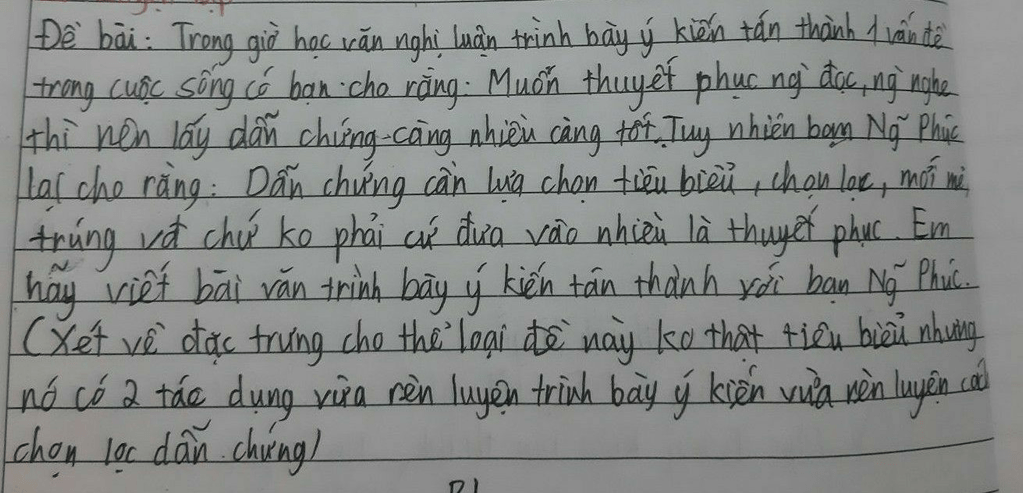 Đề bài: Trong giờ học văn nghị luận trình bày ý kiến tán thành 1 vấn đề
trong cuộc sống có bạn cho rằng: Muốn thuyết phục ng` đọc, ng` nghe
thì nên lấy dẫn chứng càng nhiều càng tốt. Tuy nhiên bạn Ng~ Phúc
lại cho rằng: Dẫn chứng cần lựa chọn tiêu biểu, chọn lọc, mới mẻ,
trúng vđ chứ ko phải cứ đưa vào nhiều là thuyết phục. Em
hãy viết bài văn trình bày ý kiến tán thành với bạn Ng~ Phúc.
(Xét về đặc trưng cho thể loại đề này ko thật tiêu biểu nhưng
nó có 2 tác dụng vừa rèn luyện trình bày ý kiến vừa rèn luyện cách
chọn lọc dẫn chứng)